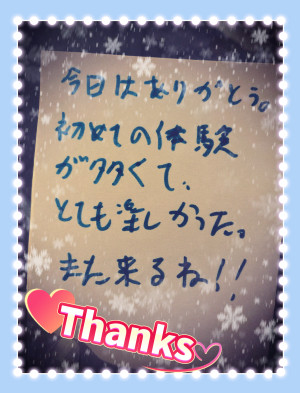 今日はありがとう。
初めての体験
が多くて、
とても楽しかった。
また来るね!!
Thanks